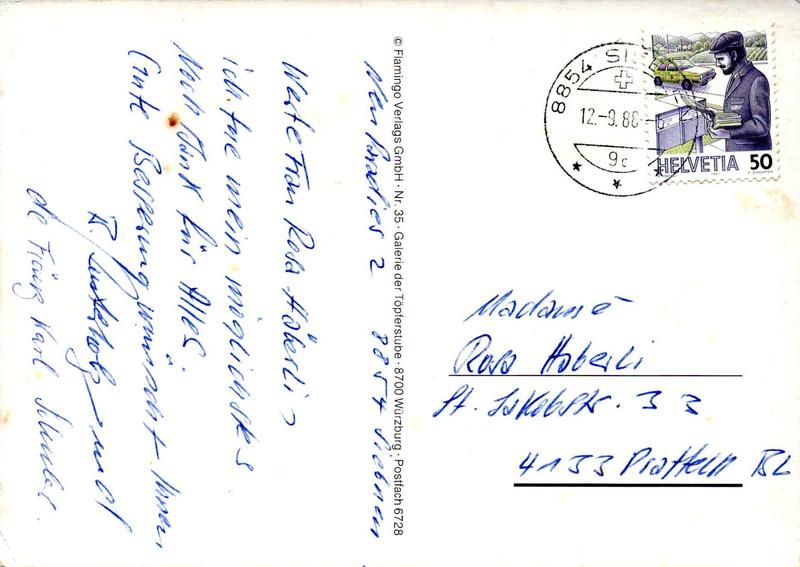 Neu Paradies 2 8854 Siebnen
Werte Frau Rosa Häberli
ich tue mein möglichstes
Noch Dank für Alles
Gute Besserung wünscht Ihnen
R. und
die Fränz Karl
© Flamingo Verlags GmbH · Nr. 35 · Galerie der Töpferstube · 8700 Würzburg · Postfach 6728
8854 SIE
12.-9.88-
9c
HELVETIA 50
Madame
Rosa Häberli
St. Jakobstr. 33
4133 Pratteln BL